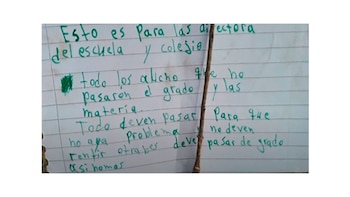 Esto es Para las directora
del escuela y colegio
todo los alucho que no
pasaron el grado y las
materia.
Todo deven pasar Para que
no aya Problema no deven
rentir otrabes deven pasar de grado
asinomas